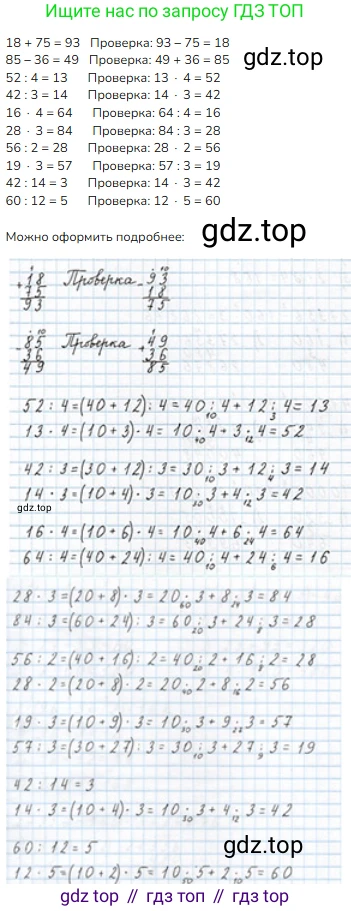 Ищите нас по запросу ГДЗ ТОП
18 + 75 = 93 Проверка: 93 – 75 = 18
85 – 36 = 49 Проверка: 49 + 36 = 85
gdz.top
52 : 4 = 13 Проверка: 13 · 4 = 52
42 : 3 = 14 Проверка: 14 · 3 = 42
16 · 4 = 64 Проверка: 64 : 4 = 16
28 · 3 = 84 Проверка: 84 : 3 = 28
56 : 2 = 28 Проверка: 28 · 2 = 56
19 · 3 = 57 Проверка: 57 : 3 = 19
42 : 14 = 3 Проверка: 14 · 3 = 42
60 : 12 = 5 Проверка: 12 · 5 = 60
Можно оформить подробнее: gdz.top
1 10
+18 Проверка -93
75 18
93 75
10
-85 Проверка +49
36 36
49 85
52 : 4 = (40 + 12) : 4 = 40 : 4 + 12 : 4 = 13
10 3
13 · 4 = (10 + 3) · 4 = 10 · 4 + 3 · 4 = 52
40 12
42 : 3 = (30 + 12) : 3 = 30 : 3 + 12 : 3 = 14
10 4
14 · 3 = (10 + 4) · 3 = 10 · 3 + 4 · 3 = 42
30 12
gdz.top
16 · 4 = (10 + 6) · 4 = 10 · 4 + 6 · 4 = 64
40 24
64 : 4 = (40 + 24) : 4 = 40 : 4 + 24 : 4 = 16
10 6
28 · 3 = (20 + 8) · 3 = 20 · 3 + 8 · 3 = 84
60 24
84 : 3 = (60 + 24) : 3 = 60 : 3 + 24 : 3 = 28
20 8
56 : 2 = (40 + 16) : 2 = 40 : 2 + 16 : 2 = 28
20 8
28 · 2 = (20 + 8) · 2 = 20 · 2 + 8 · 2 = 56
40 16
19 · 3 = (10 + 9) · 3 = 10 · 3 + 9 · 3 = 57
57 : 3 = (30 + 27) : 3 = 30 : 3 + 27 : 3 = 19
10 9
42 : 14 = 3
14 · 3 = (10 + 4) · 3 = 10 · 3 + 4 · 3 = 42
30 12
60 : 12 = 5
gdz.top
12 · 5 = (10 + 2) · 5 = 10 · 5 + 2 · 5 = 60
50 10
gdz.top // гдз.топ // gdz.top